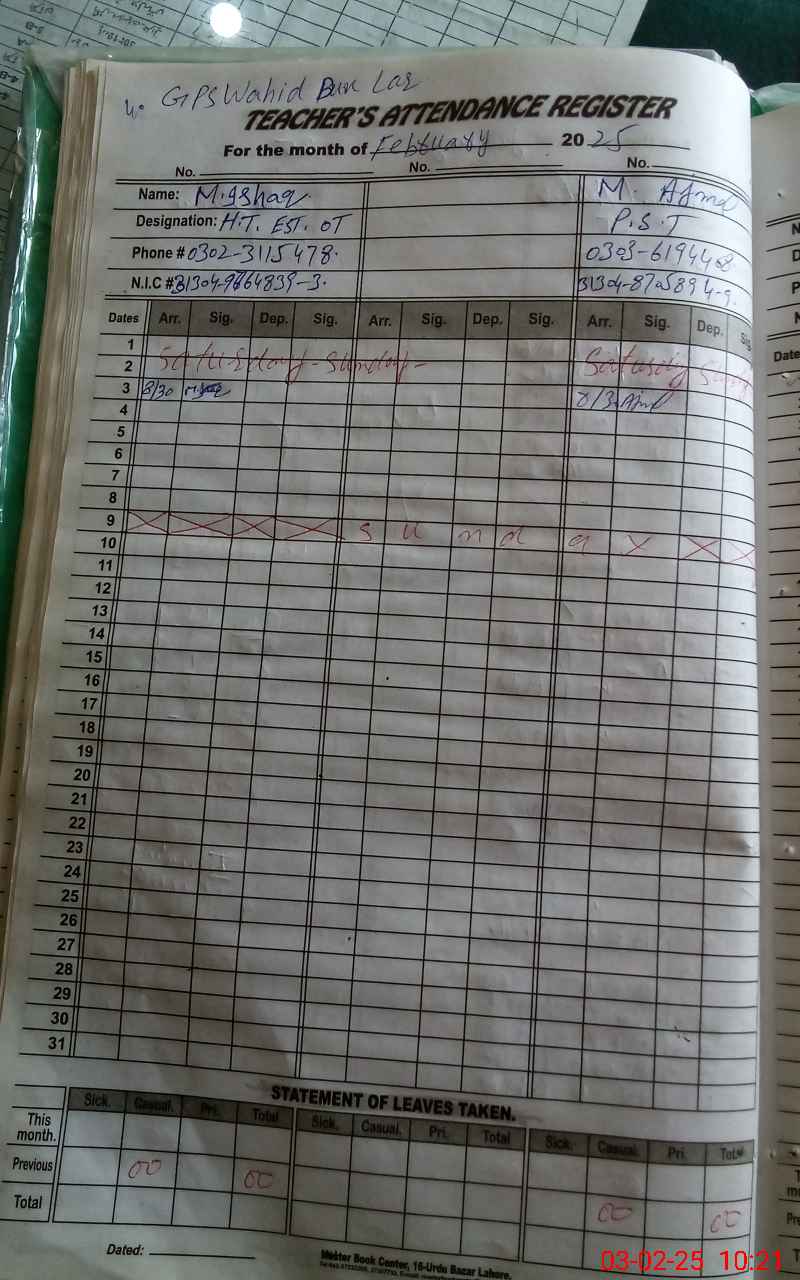 GPS Wahid Bux Lar
TEACHER'S ATTENDANCE REGISTER
For the month of February 2025
No. No. No.
Name: M. Ishaq M. Ajmal
Designation: H.T. EST. OT P.S.T
Phone # 0302-3115478. 0303-6194468
N.I.C # 31304-9764839-3. 31304-8705894-9.
Dates Arr. Sig. Dep. Sig. Arr. Sig. Dep. Sig. Arr. Sig. Dep. Sig
1
2 Saturday - Sunday - Saturday Sunday
3 8/30 8/30 Ajmal
4
5
6
7
8
9 X X X X S u n d a y X X
10
11
12
13
14
15
16
17
18
19
20
21
22
23
24
25
26
27
28
29
30
31
STATEMENT OF LEAVES TAKEN.
Sick. Casual. Pri. Total Sick. Casual. Pri. Total Sick. Casual. Pri. Total
This month.
Previous 00 00
Total 00 00
Dated:
Mehter Book Center, 16-Urdu Bazar Lahore.
03-02-25 10:21